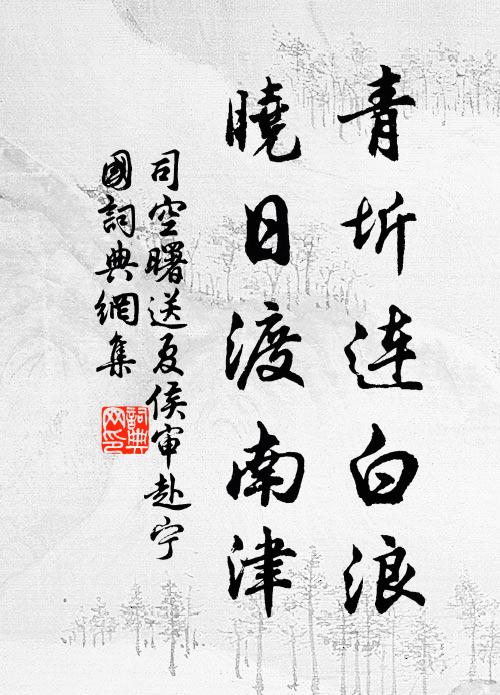 青圻连白浪
曉日渡南津
司空曙送夏侯审赴宁
國詞典網集
詞典
网印